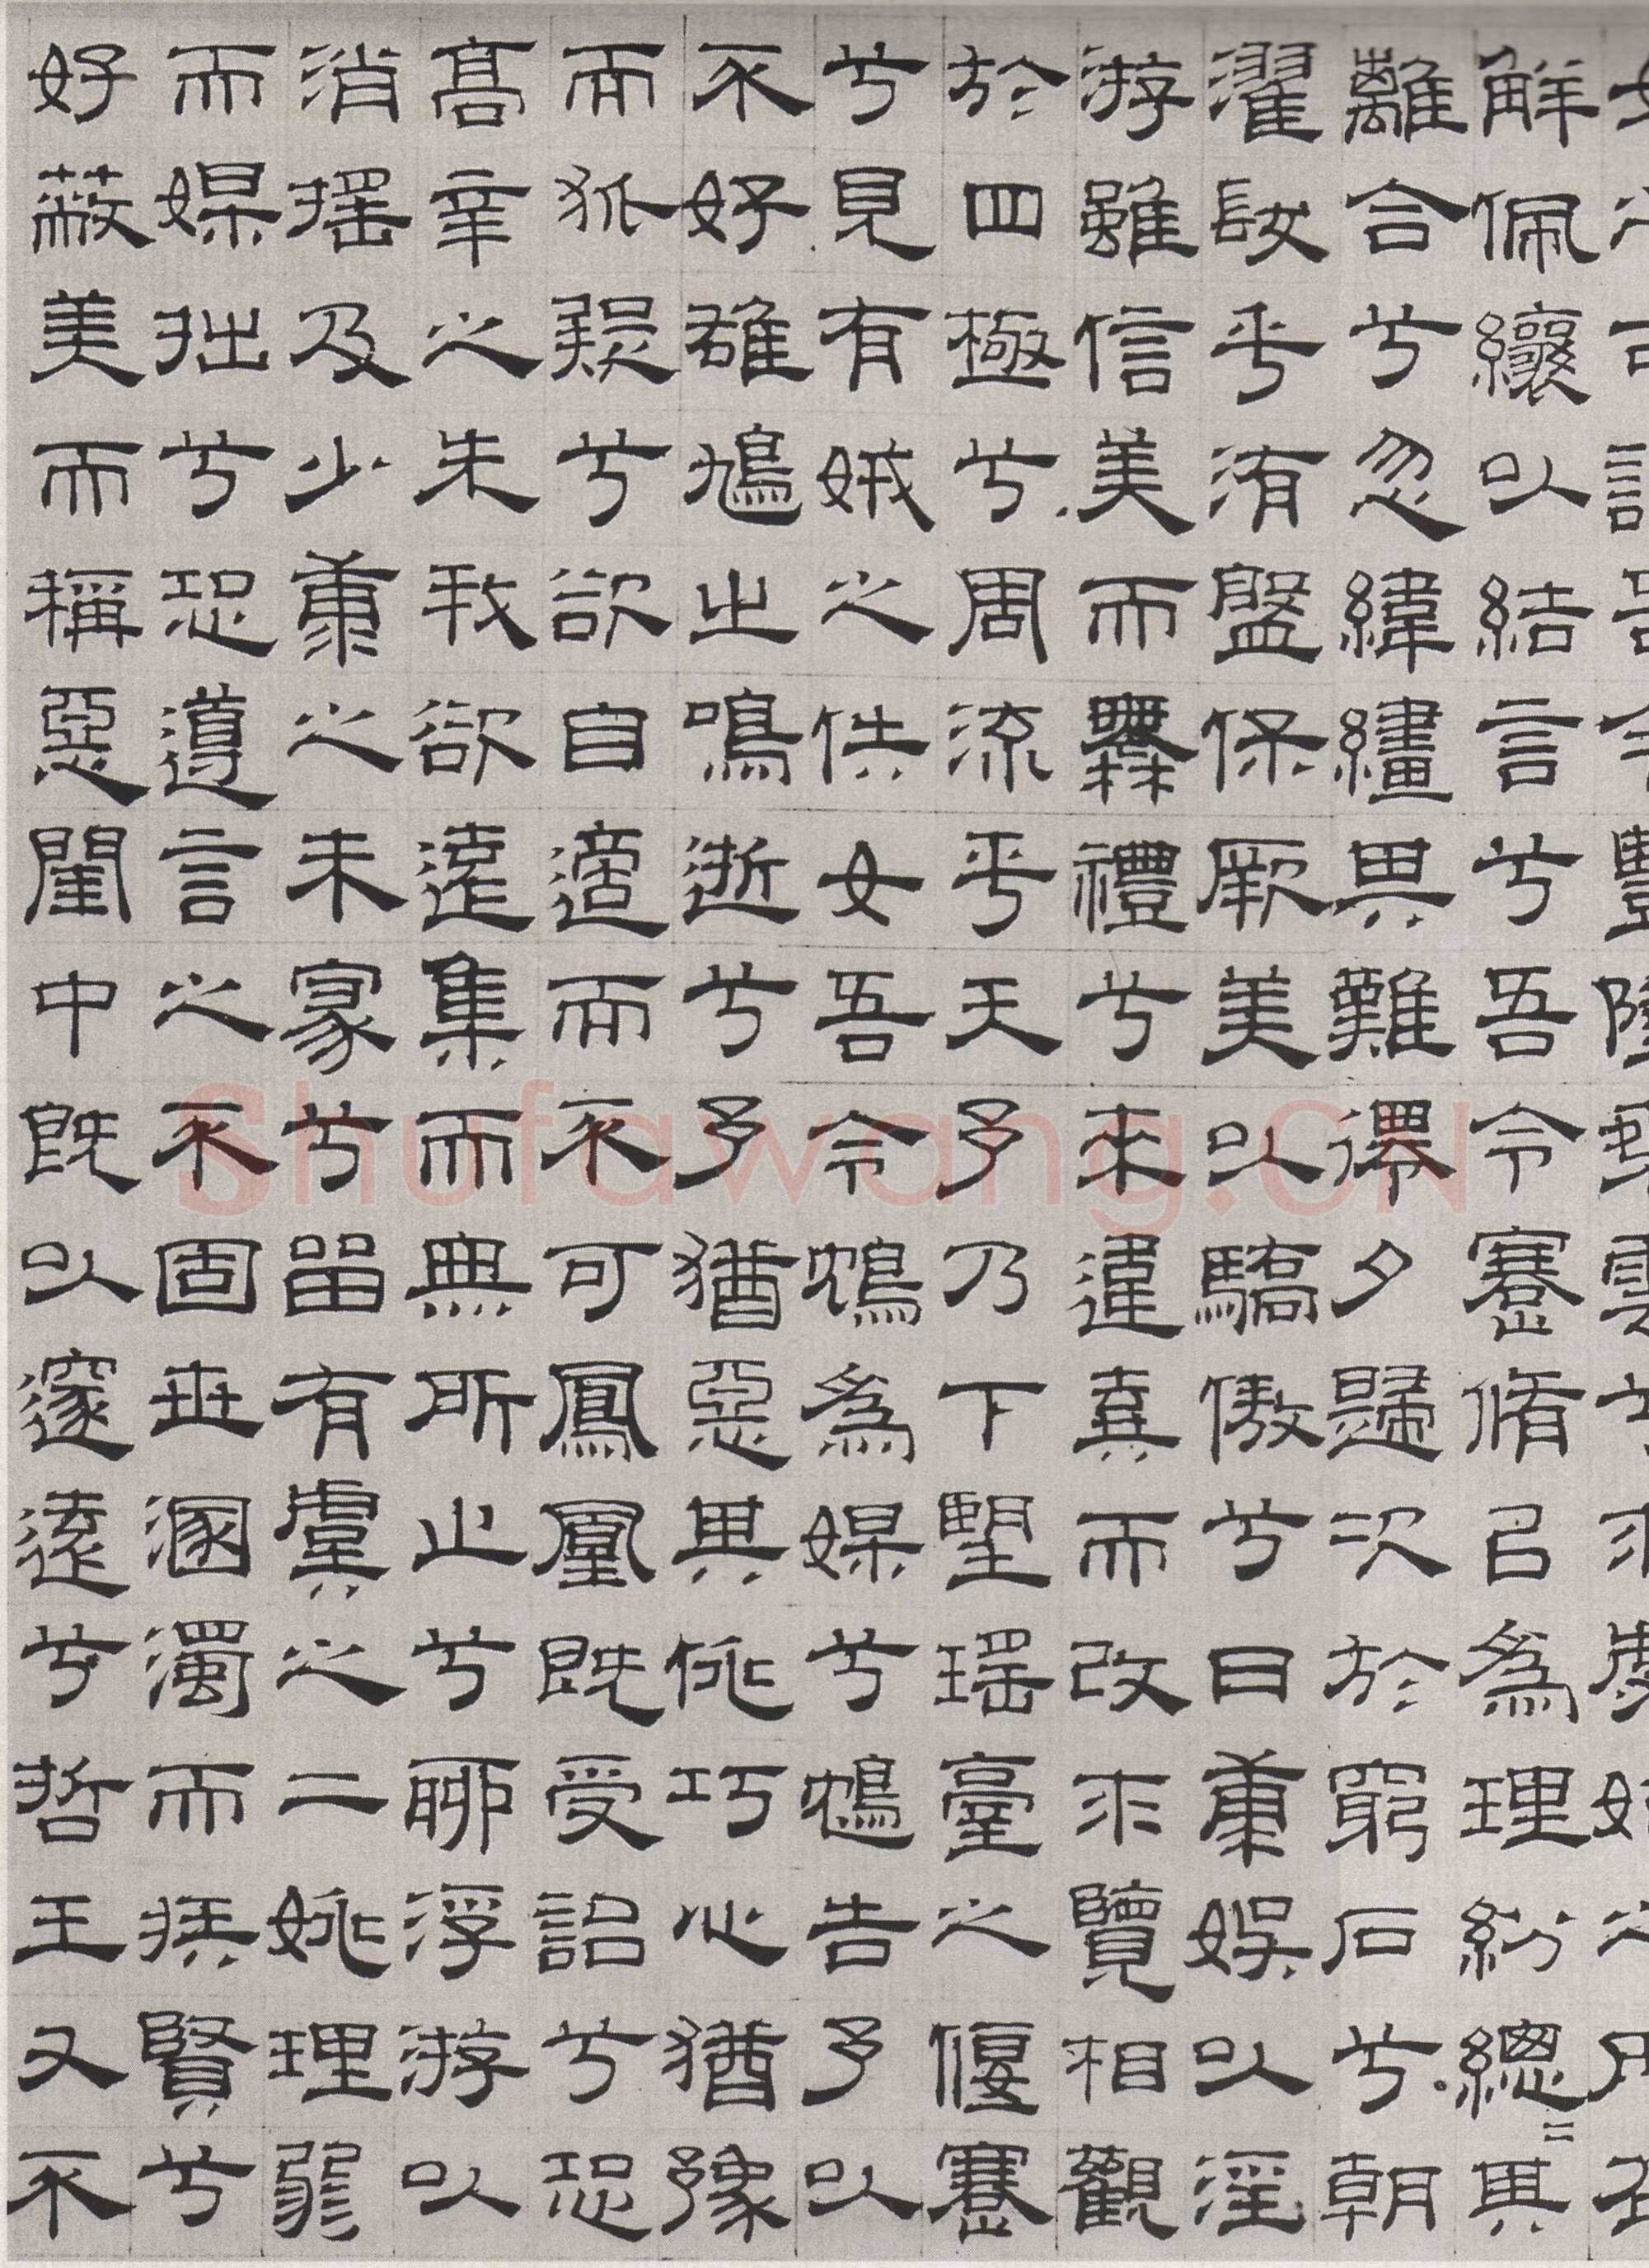 解佩纕以結言兮吾令蹇脩㠯為理紛總〻其
離合兮忽緯繣其難遷夕歸次於窮石兮朝
濯髮乎洧盤保厥美以驕傲兮日康娛以淫
游雖信美而無禮兮來違棄而改求覽相觀
於四極兮周流乎天予乃下望瑤臺之偃蹇
兮見有娀之佚女吾令鴆為媒兮鴆告予以
不好雄鳩之鳴逝兮予猶惡其佻巧心猶豫
而狐疑兮欲自適而不可鳳凰既受詒兮恐
高辛之先我欲遠集而無所止兮聊浮游以
消搖及少康之未家兮留有虞之二姚理弱
而媒拙兮恐導言之不固世溷濁而嫉賢兮
好蔽美而稱惡閨中既以邃遠兮哲王又不
Shufawang.CN